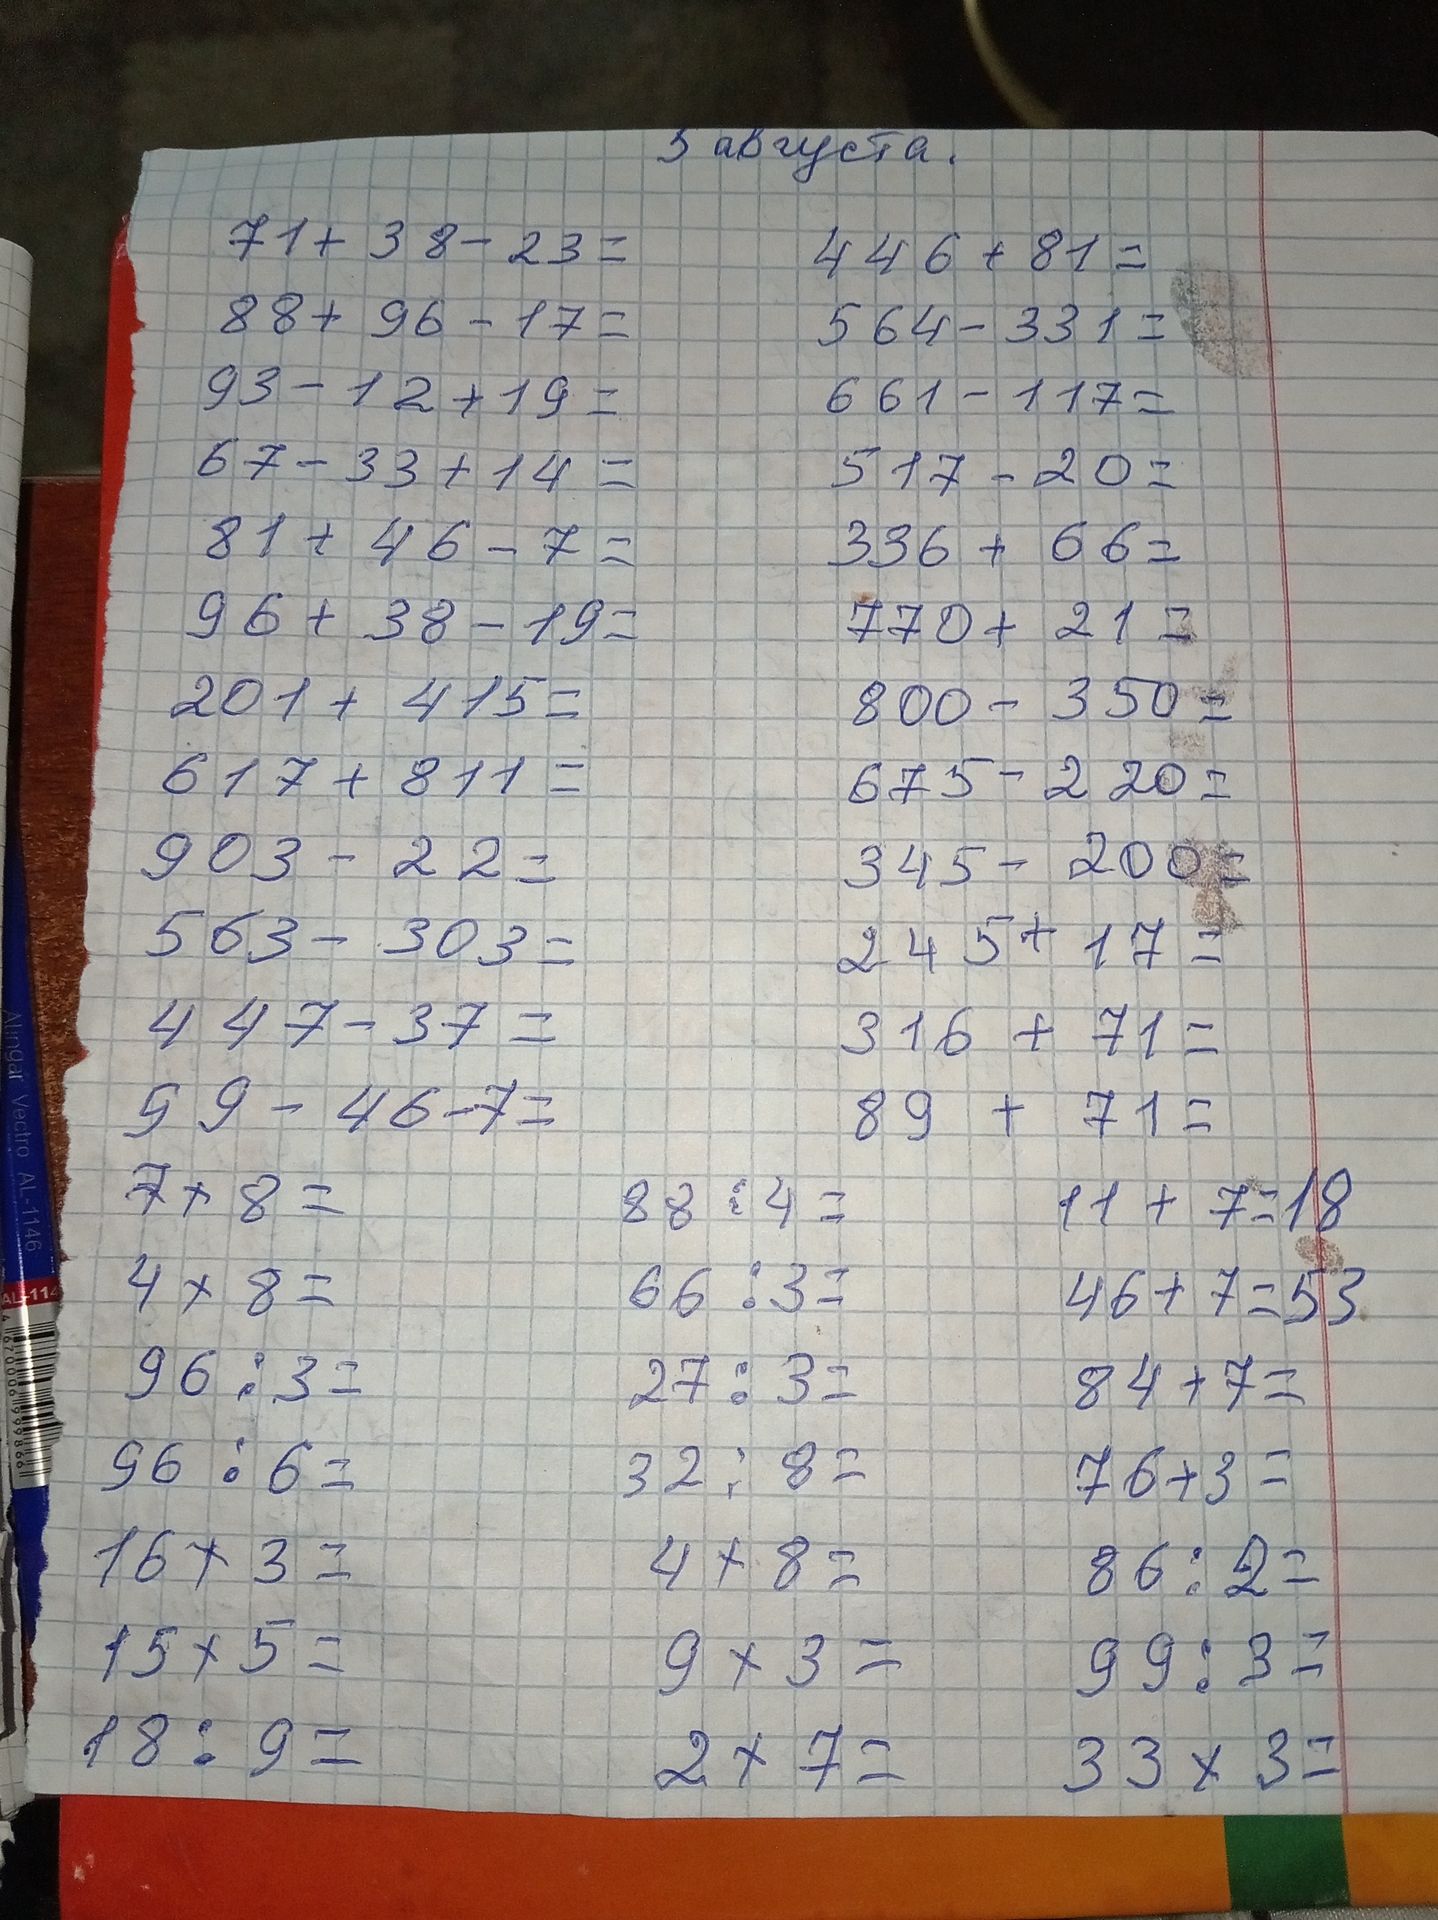 5 августа.
71+38-23= 446+81=
88+96-17= 564-331=
93-12+19= 661-117=
67-33+14= 517-20=
81+46-7= 336+66=
96+38-19= 770+21=
201+415= 800-350=
617+811= 675-220=
903-22= 345-200=
563-303= 245+17=
447-37= 316+71=
59-46-7= 89+71=
7×8= 88:4= 11+7=18
4×8= 66:3= 46+7=53
96:3= 27:3= 84+7=
96:6= 32:8= 76+3=
16×3= 4×8= 86:2=
15×5= 9×3= 99:3=
18:9= 2×7= 33×3=
Alingar Vectro AL-1146